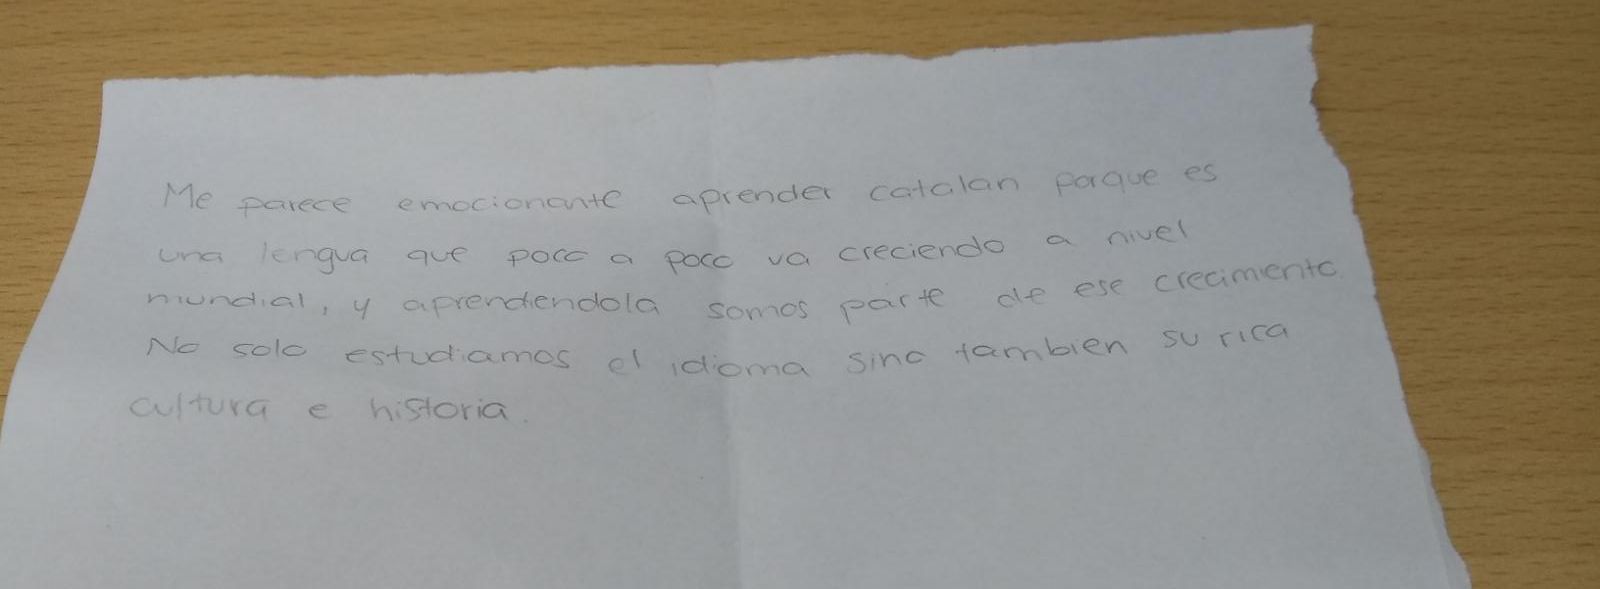 Me parece emocionante aprender catalan porque es
una lengua que poco a poco va creciendo a nivel
mundial, y aprendiendola somos parte de ese crecimiento.
No solo estudiamos el idioma sino tambien su rica
cultura e historia.